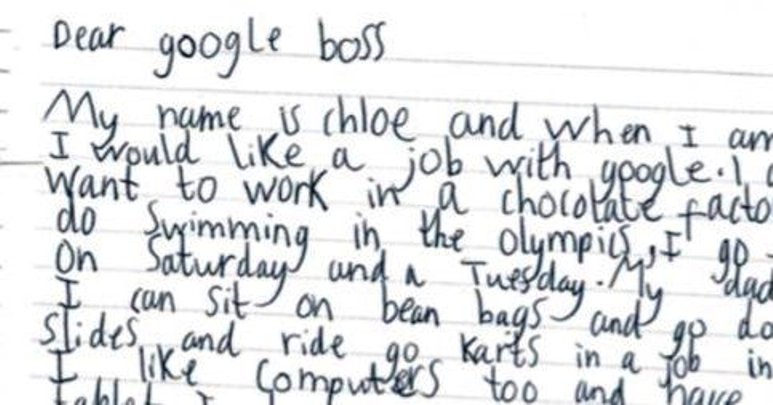 Dear google boss
My name is chloe and when I am
I would like a job with google. I
Want to work in a chocolate facto
do Swimming in the olympics, I go
On Saturday and a Tuesday. My dad
I can sit on bean bags and go do
Slides and ride go karts in a job in
I like Computers too and have
tablet I